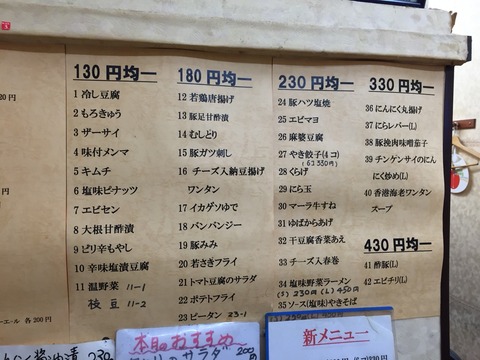 130円均一
1 冷し豆腐
2 もろきゅう
3 ザーサイ
4 味付メンマ
5 キムチ
6 塩味ピナッツ
7 エビセン
8 大根甘酢漬
9 ピリ辛もやし
10 辛味塩漬豆腐
11 温野菜 11-1
枝豆 11-2
180円均一
12 若鶏唐揚げ
13 豚足甘酢漬
14 むしどり
15 豚ガツ刺し
16 チーズ入納豆揚げ
ワンタン
17 イカゲソゆで
18 バンバンジー
19 豚みみ
20 若さぎフライ
21 トマト豆腐のサラダ
22 ポテトフライ
23 ピータン 23-1
230円均一
24 豚ハツ塩焼
25 エビマヨ
26 麻婆豆腐
27 やき餃子(4コ)
(6コ330円)
28 くらげ
29 にら玉
30 マーラ牛すね
31 ゆばからあげ
32 干豆腐香菜あえ
33 チーズ入春巻
34 塩味野菜ラーメン
(S)230円(L)450円
35 ソース(塩味)やきそば
330円均一
36 にんにく丸揚げ
37 にらレバー(L)
38 豚挽肉味噌茄子
39 チンゲンサイのにん
にく炒め(L)
40 香港海老ワンタン
スープ
430円均一
41 酢豚(L)
42 エビチリ(L)
ーエール 各200円
本日のおすすめ
サラダ 200円
新メニュー
230